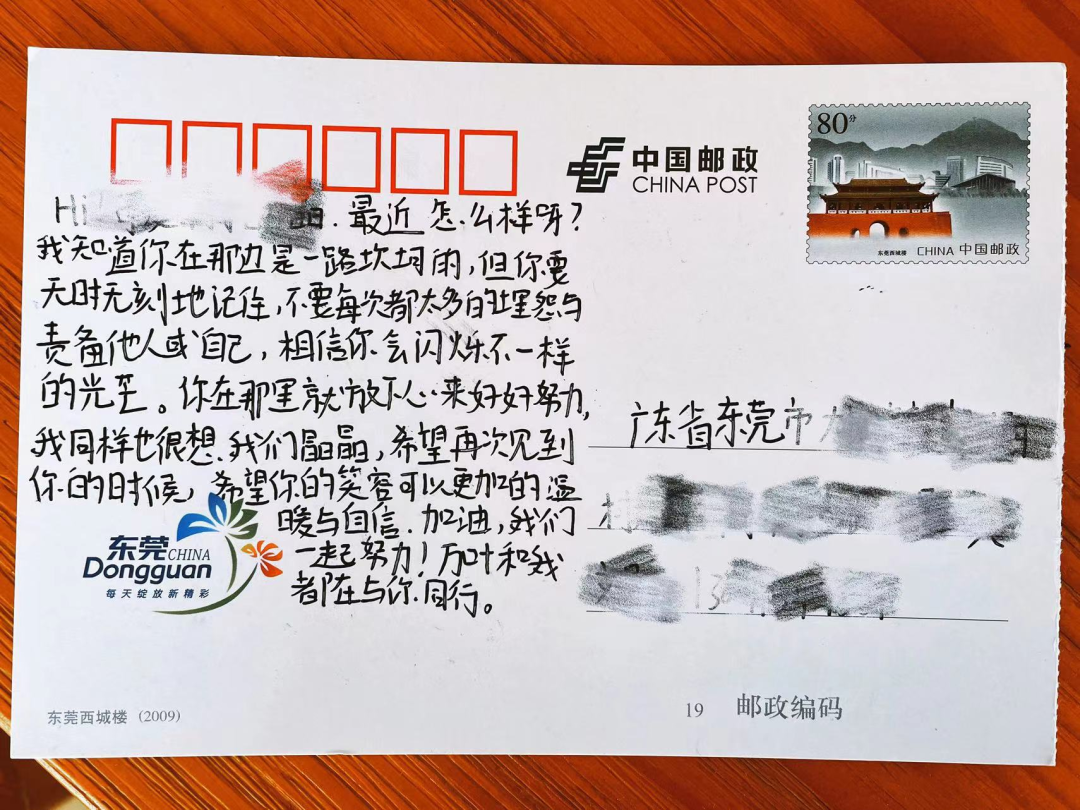 80分
中国邮政
CHINA POST
东莞西城楼 CHINA 中国邮政
Hi 最近怎么样呀?
我知道你在那边是一路坎坷的,但你要
无时无刻地记住,不要每次都太多的埋怨与
责备他人或自己,相信你会闪烁不一样
的光芒。你在那里就放下心来好好努力,
我同样也很想我们晶晶,希望再次见到
你的时候,希望你的笑容可以更加的温
暖与自信.加油,我们
一起努力!万叶和我
都在与你同行。
广东省东莞市
东莞CHINA
Dongguan
每天绽放新精彩
东莞西城楼 (2009)
19 邮政编码